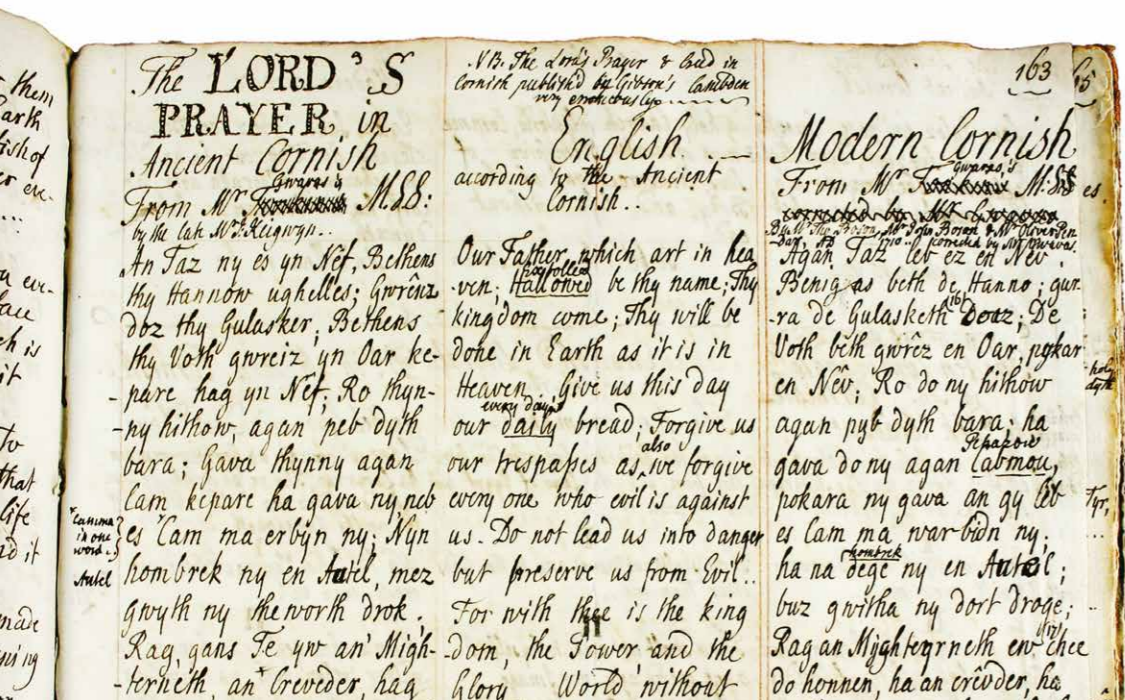 The LORD'S
PRAYER in
Ancient Cornish
Gwavas's
From Mr MSS:
by the late Mr J. Keigwyn..
An Taz ny es yn Nêf, Bethens
thy Hannow ughelles; Gwrênz
doz thy Gulasker; Bethens
thy Voth gwreiz yn Oar ke-
pare hag yn Nêf; Ro thyn-
ny hithow, agan peb dyth
bara; Gava thynny agan
Cam kepare ha gava ny neb
es Cam ma erbyn ny; Nyn
hombrek ny en Antel, mez
gwyth ny theworth drok.
Rag gans Te yw an Migh-
terneth, an Creveder, hag
Camma
in one
word.
Antel
NB. The Lord's Prayer & Creed in
Cornish publish'd by Gibson's Cambden
very erroneously
English
according to the Ancient
Cornish..
Our Father which art in hea
ven; Hallowed be thy name; Thy
kingdom come; Thy will be
done in Earth as it is in
Heaven. Give us this day
every day
our daily bread; Forgive us
also
our trespasses as we forgive
every one who evil is against
us. Do not lead us into danger
but preserve us from Evil..
For with thee is the king
dom, the Power and the
Glory World without
163
Modern Cornish
Gwavas's
From Mr MSS
corrected by Mr Gwavas
By Mr Tho Boson, Mr John Boson & Mr Oliver Pen
der, 1710.. corrected by Mr Gwavas.
Agan Taz leb ez en Nêv.
Benigas beth de Hanno; gur
-ra de Gulasketh Doaz; De
Voth bêth gwrêz en Oar, pokar
en Nêv; Ro do ny hithow
agan pyb dyth bara; ha
gava do ny agan Cabmou,
pokara ny gava an gy leb
es Cam ma war bidn ny;
hombrek
ha na dege ny en Antel;
buz gwitha ny dort droge;
Rag an Mychteyrneth ew chee
do honnen, ha an crêvder, ha
them
arth
ish of
life
made